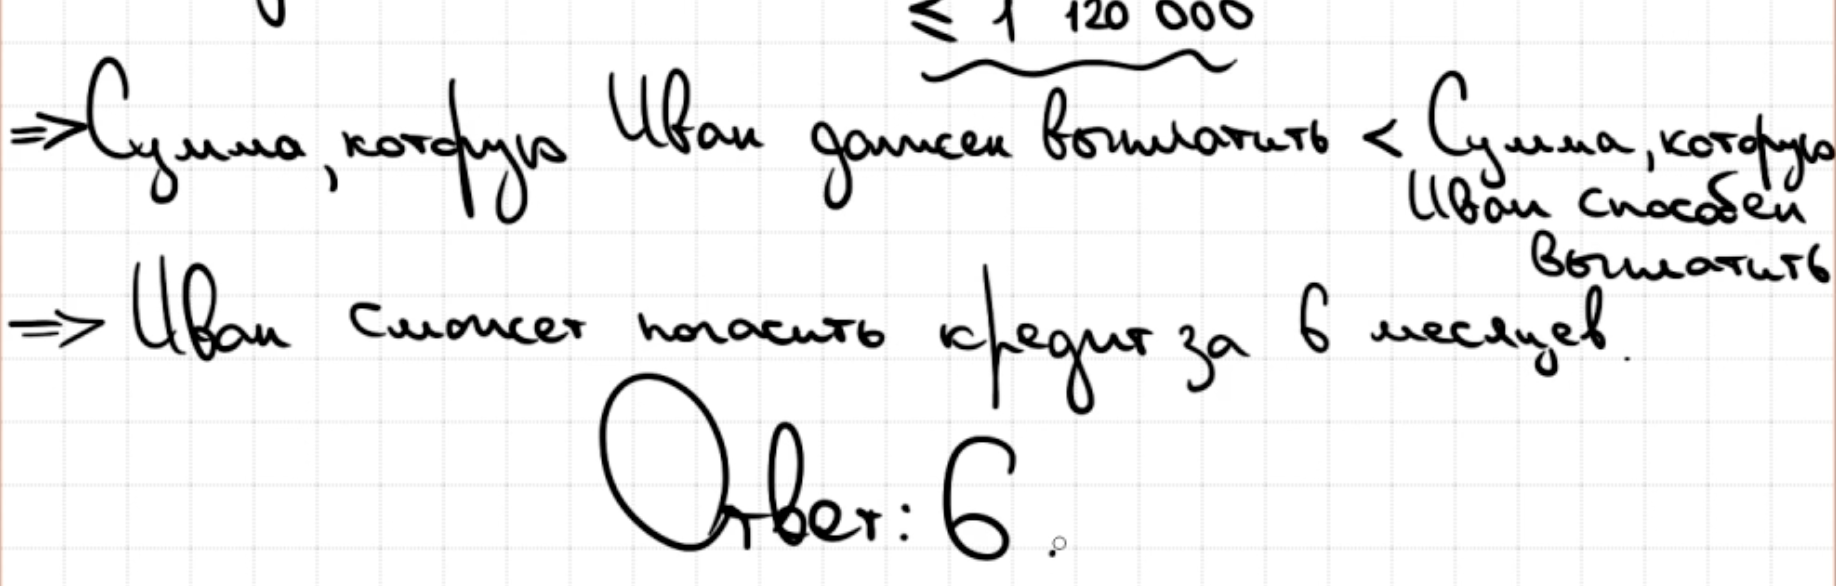 ≤ 1 120 000
⇒ Сумма, которую Иван должен выплатить < Сумма, которую
Иван способен
выплатить
⇒ Иван сможет погасить кредит за 6 месяцев.
Ответ: 6.